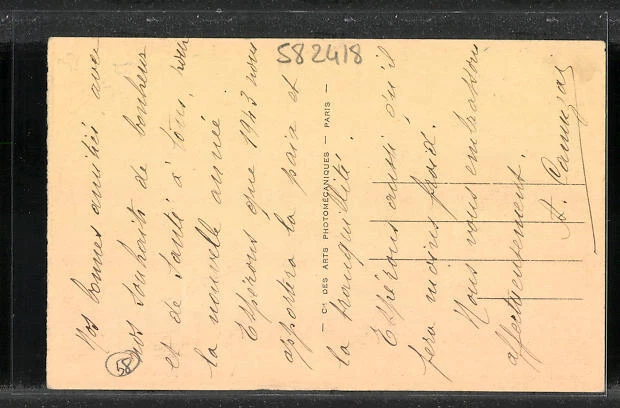 582418
Nos bonnes amitiés, avec
nos souhaits de bonheur
et de santé à tous, pour
la nouvelle année
Espérons que 1943 nous
apportera la paix et
la tranquillité.
Espérons aussi qu'il
fera moins froid.
Nous vous embrassons
affectueusement.
58
Cie DES ARTS PHOTOMÉCANIQUES — PARIS —